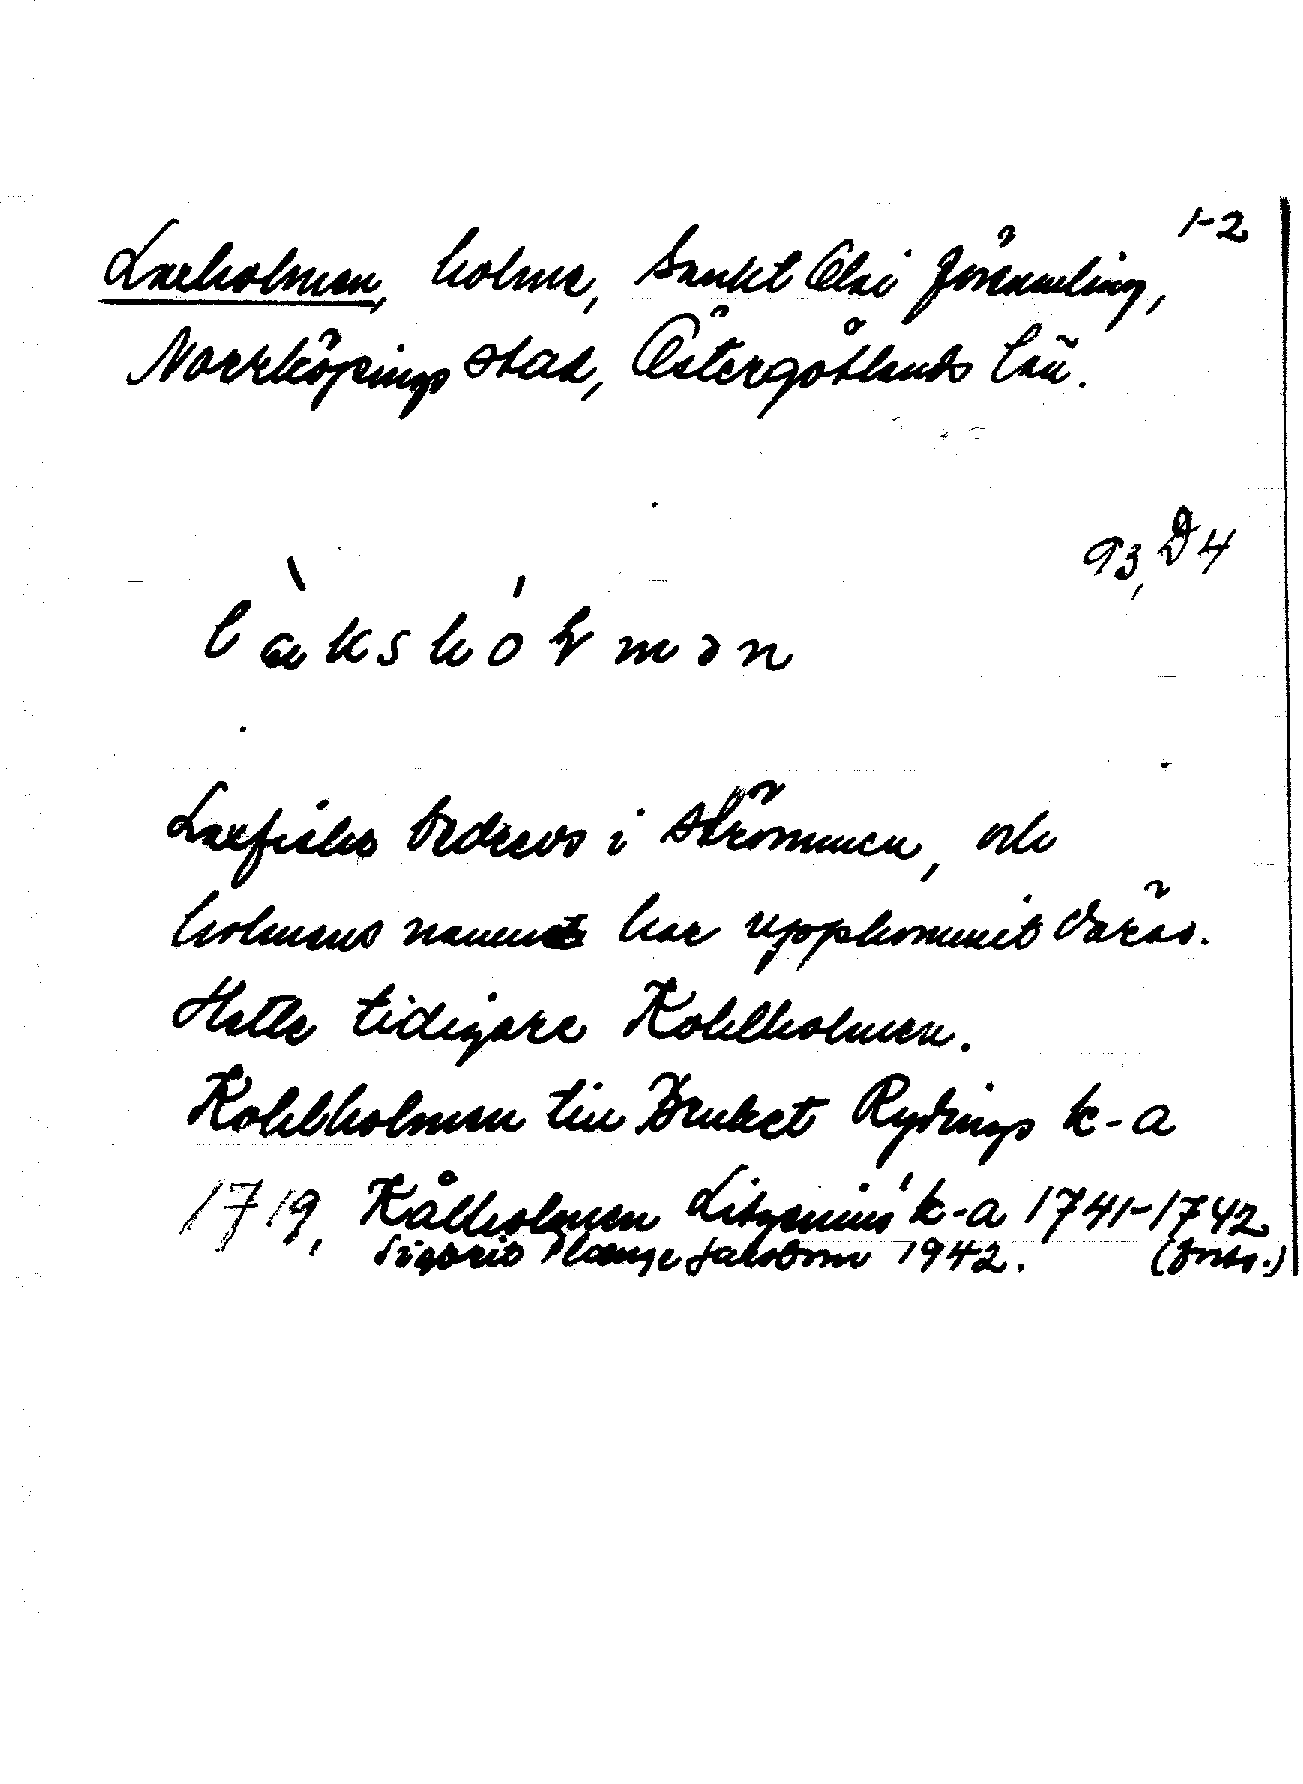 1-2
Laxholmen, holme, Sankt Olai församling,
Norrköpings stad, Östergötlands län.
93, D4
làkshólmən
Laxfiske bedrevs i strömmen, och
holmens namn har uppkommit därav.
Hette tidigare Kohlholmen.
Kohlholmen tili Bruket Rydings k-a
1719, Kålholmen k-a 1741-1742
Sigbrit Plænge Jacobson 1942. (forts.)